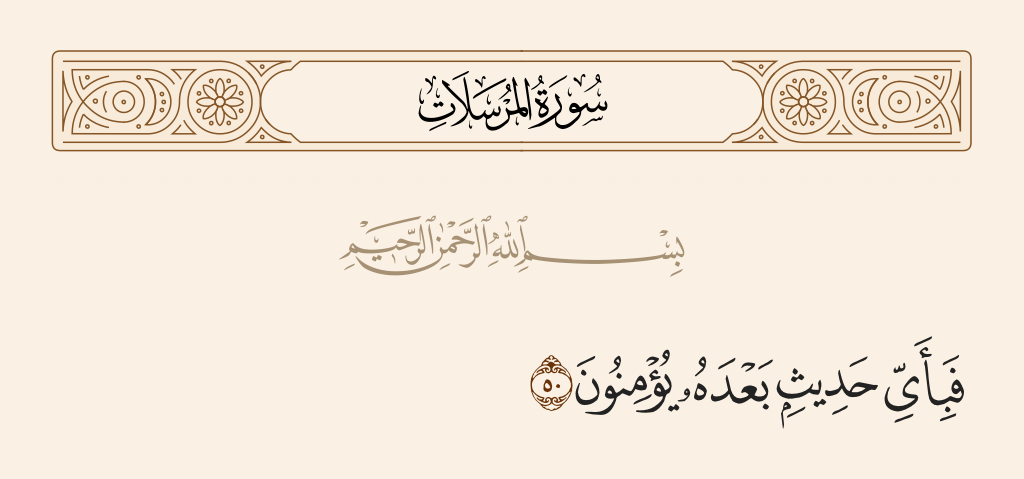 سُورَةُ المُرۡسَلَاتِ
بِسۡمِ ٱللَّهِ ٱلرَّحۡمَٰنِ ٱلرَّحِيمِ
فَبِأَيِّ حَدِيثِۭ بَعۡدَهُۥ يُؤۡمِنُونَ ٥٠